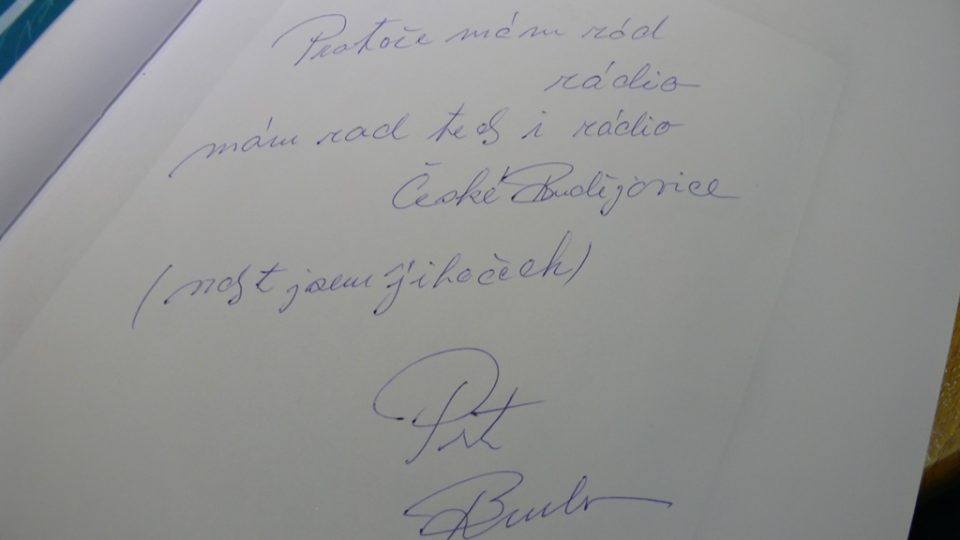 Protože mám rád
rádio
mám rad tedy i rádio
České Budějovice
(vždyť jsem jihočech)
Petr